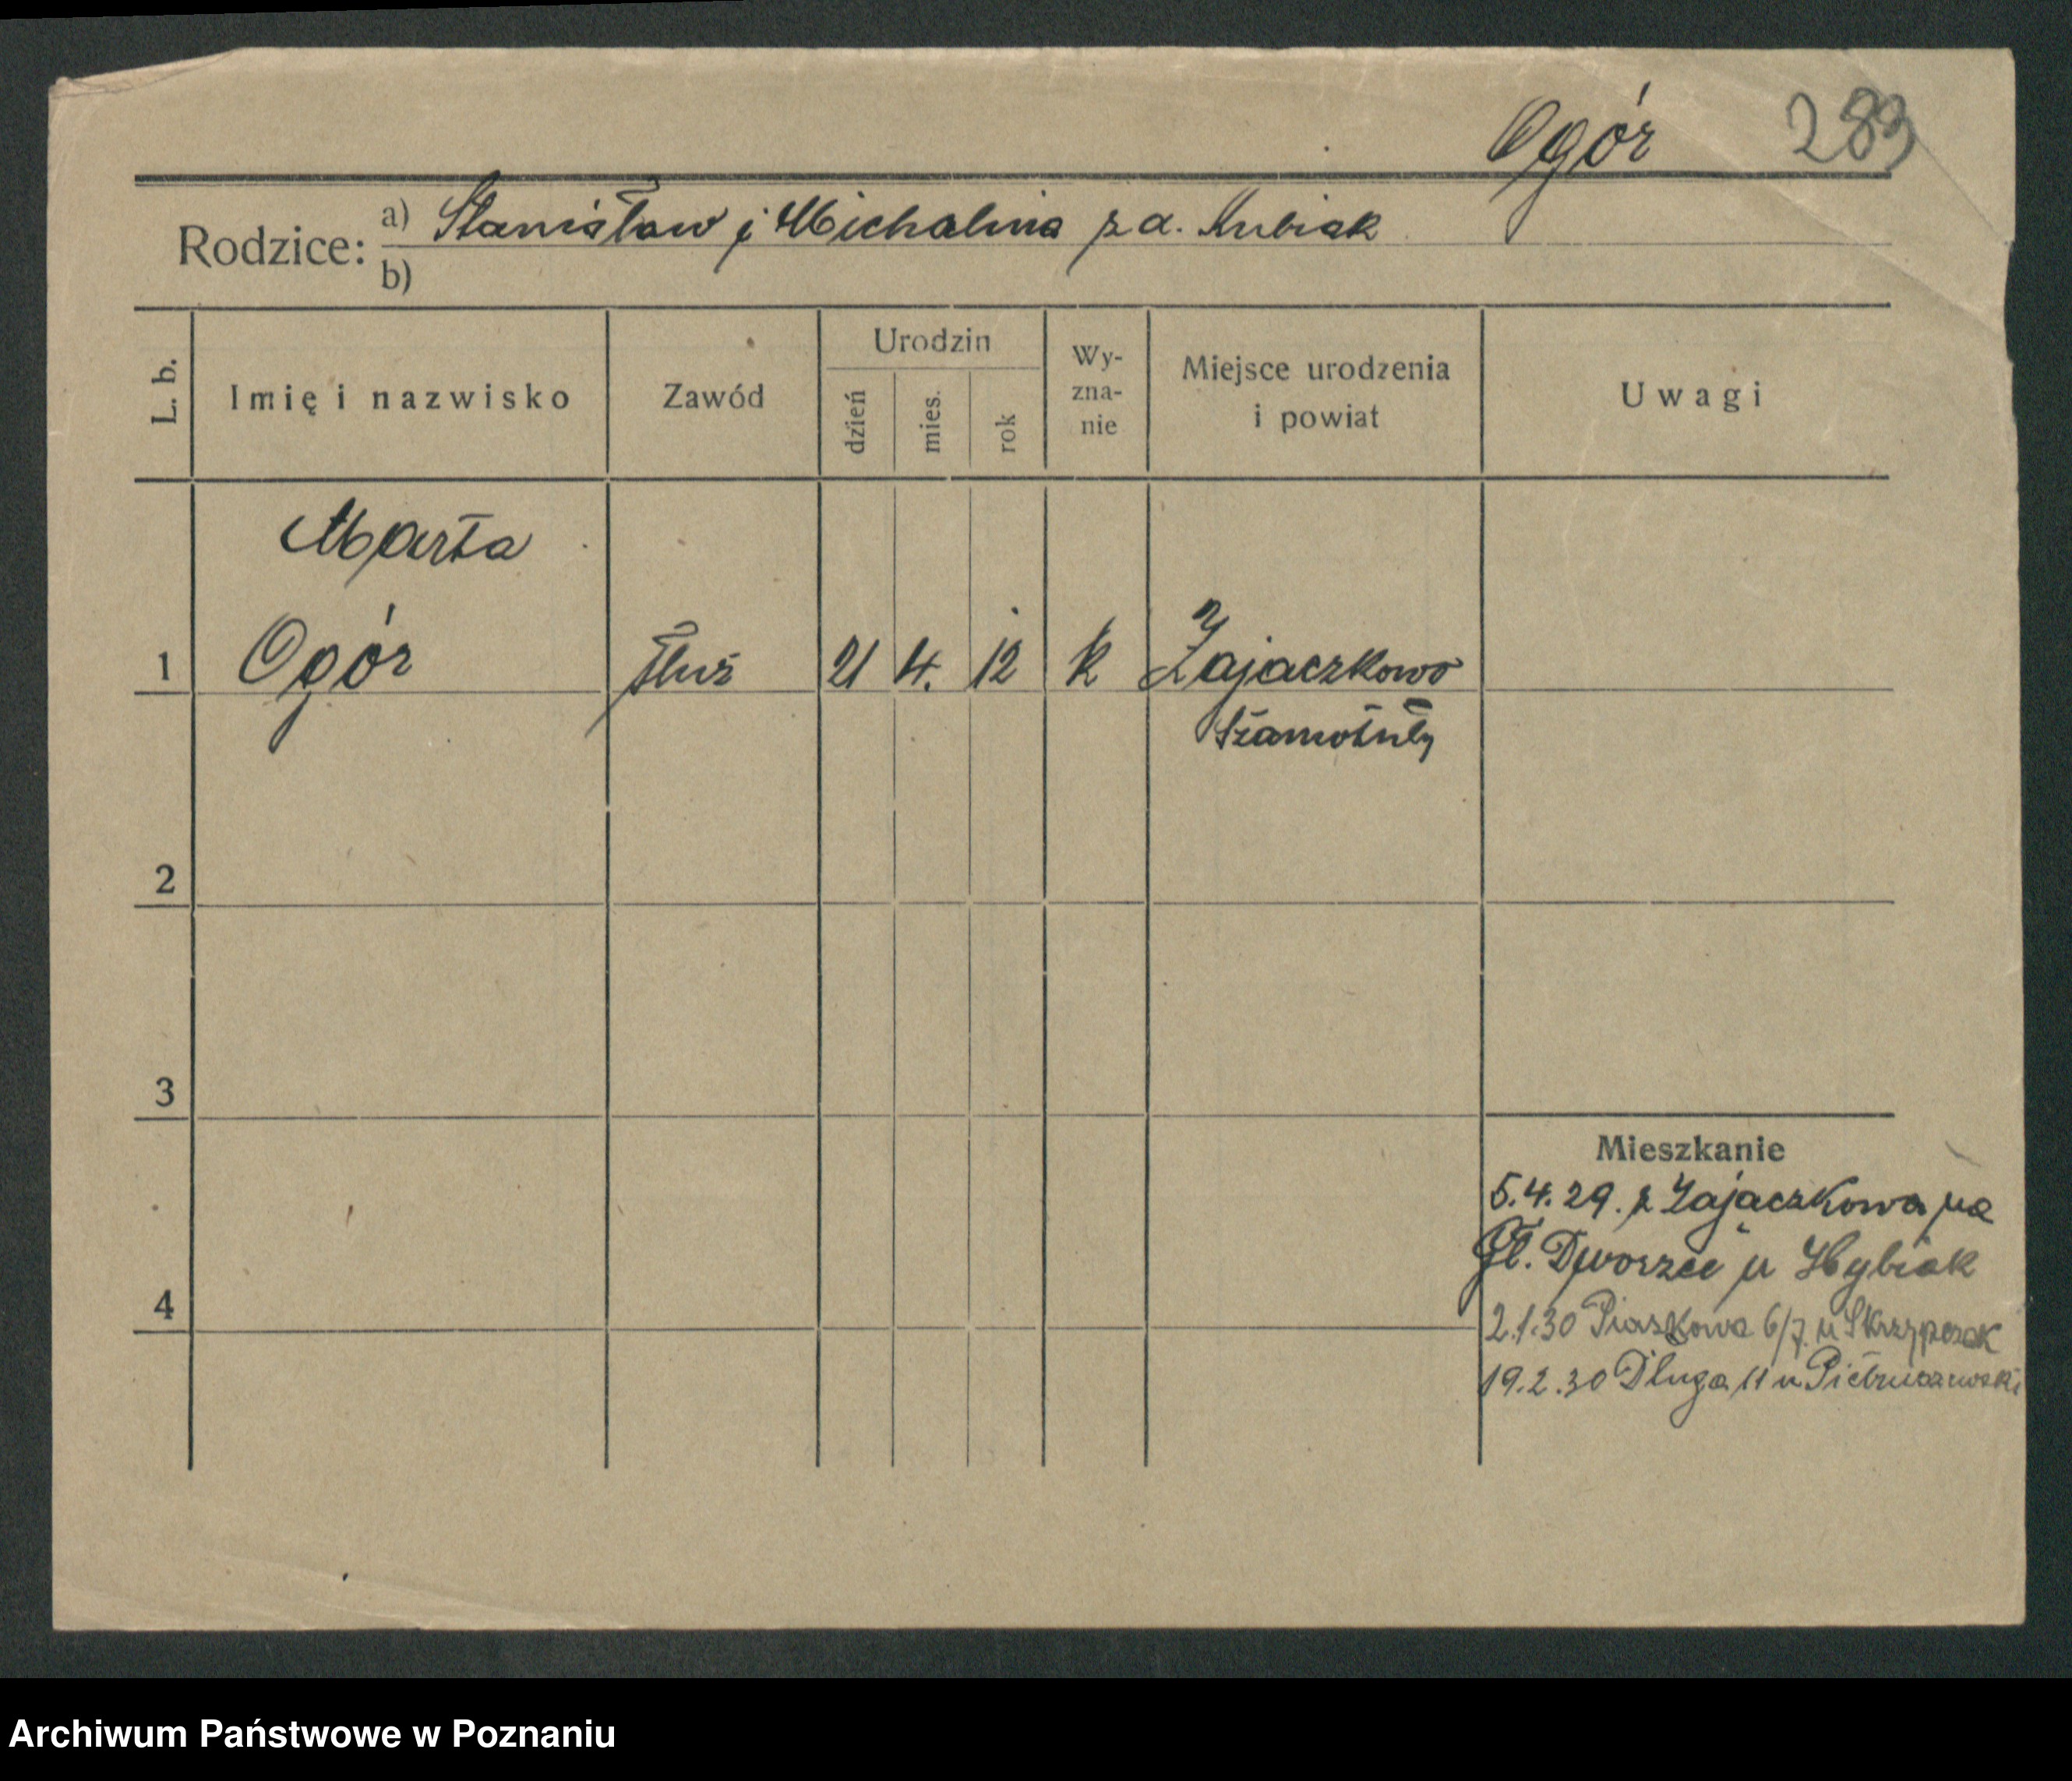 Ogór 283
Rodzice: a) Stanisław i Michalina z d. Kubiak
b)
L. b. Imię i nazwisko Zawód Urodzin dzień mies. rok Wy-zna-nie Miejsce urodzenia i powiat Uwagi
Marta
1 Ogór służ 21 4. 12 k Zajaczkowo
Szamotuły
2
3
Mieszkanie
5.4.29. z Zajaczkowa na
Gł. Dworzec u Hybiak
4
2.1.30 Piaskowa 6/7. u Skrzypczak
19.2.30 Długa 11 u Pietruszewski
Archiwum Państwowe w Poznaniu